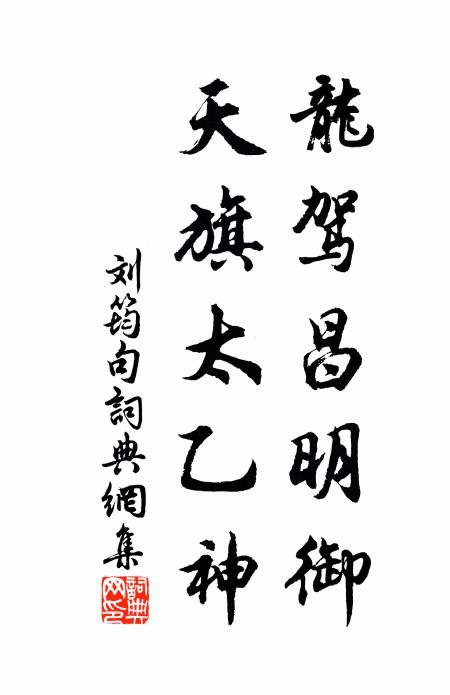 龍駕昌明御
天旗太乙神
刘筠句詞典網集
詞典网印